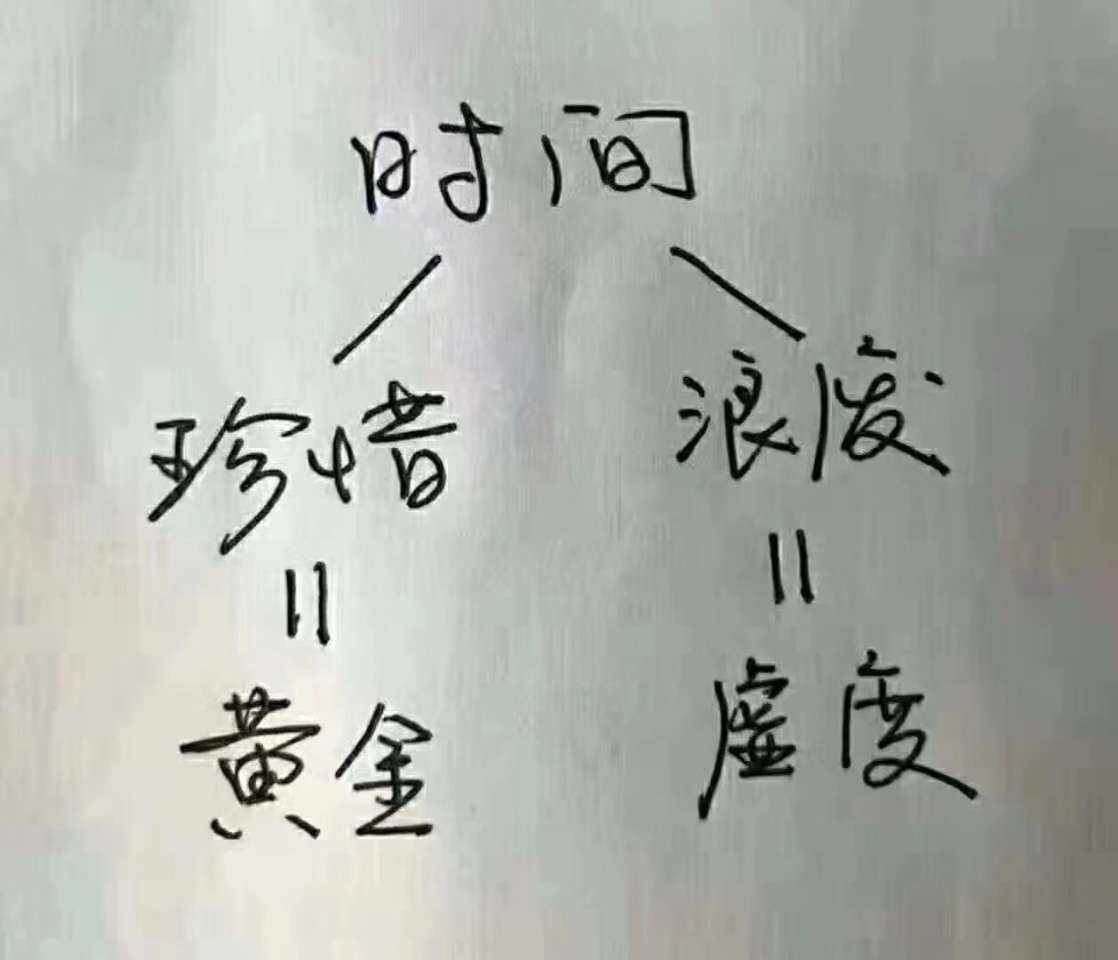 时间
珍惜 浪废
|| ||
黄金 虚度